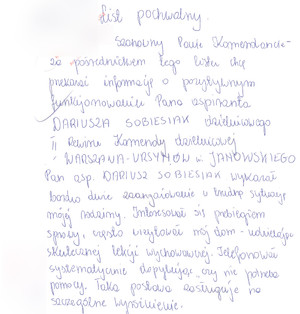 List pochwalny.
Szanowny Panie Komendancie
za pośrednictwem tego listu chcę
przekazać informację o pozytywnym
funkcjonowaniu Pana aspiranta
DARIUSZA SOBIESIAK dzielnicowego
II Rewiru Komendy dzielnicowej
WARSZAWA-URSYNÓW w. JANOWSKIEGO
Pan asp. DARIUSZ SOBIESIAK wykazał
bardzo duże zaangażowanie w trudną sytuację
mojej rodziny. Interesował się przebiegiem
sprawy, często wizytował mój dom - udzielając
skutecznej lekcji wychowawczej. Telefonował
systematycznie dopytując, czy nie potrzeba
pomocy. Taka postawa zasługuje na
szczególne wyróżnienie.